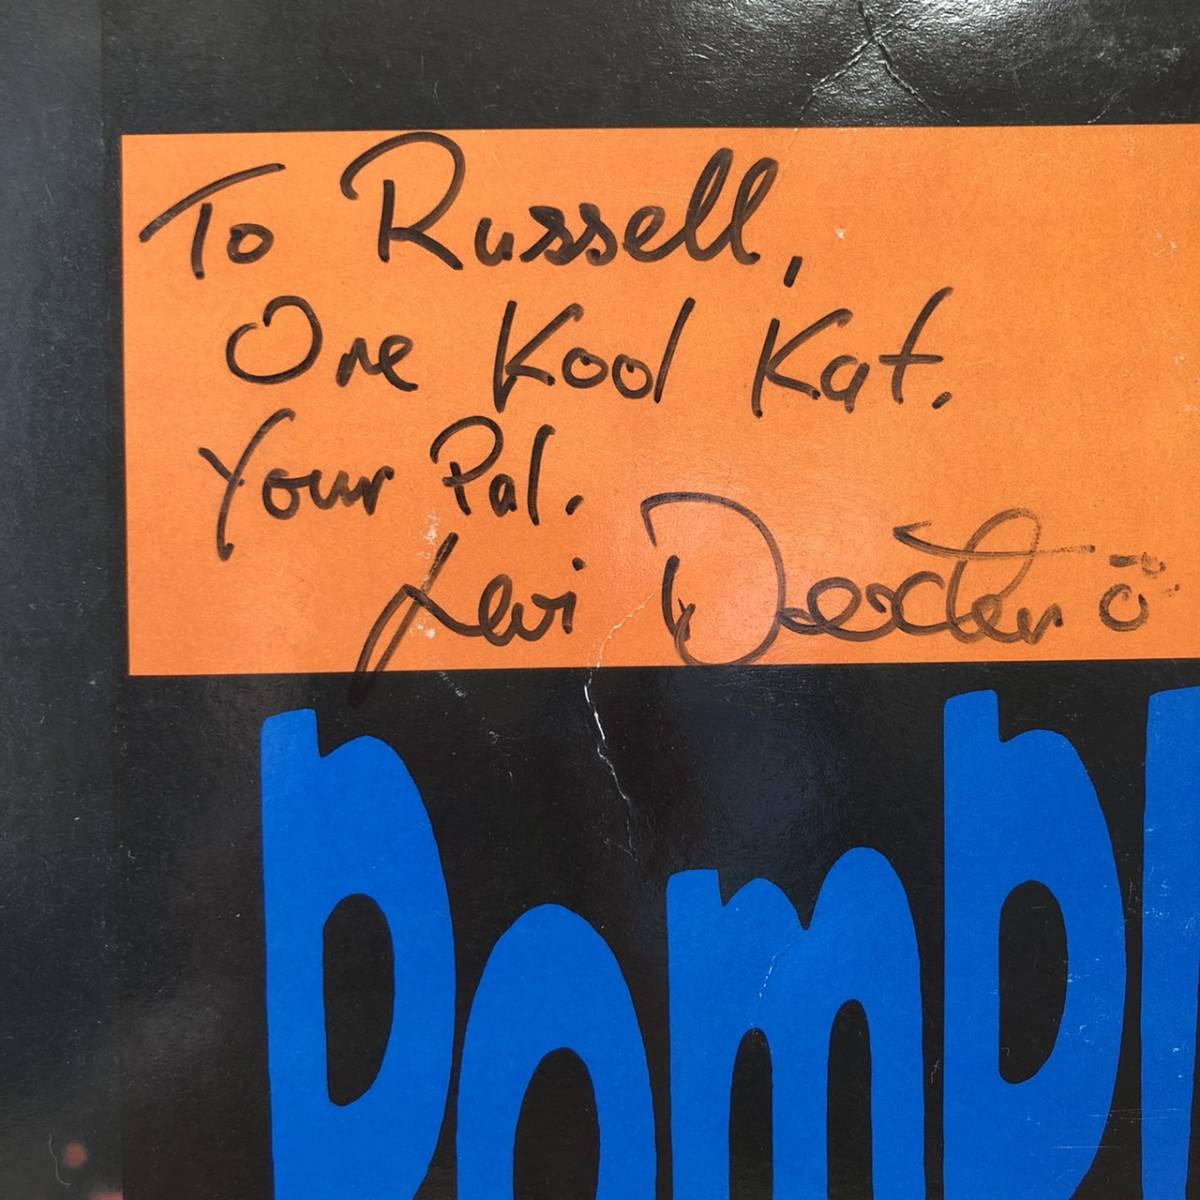 To Russell,
One Kool Kat.
Your Pal.
Levi Dexter